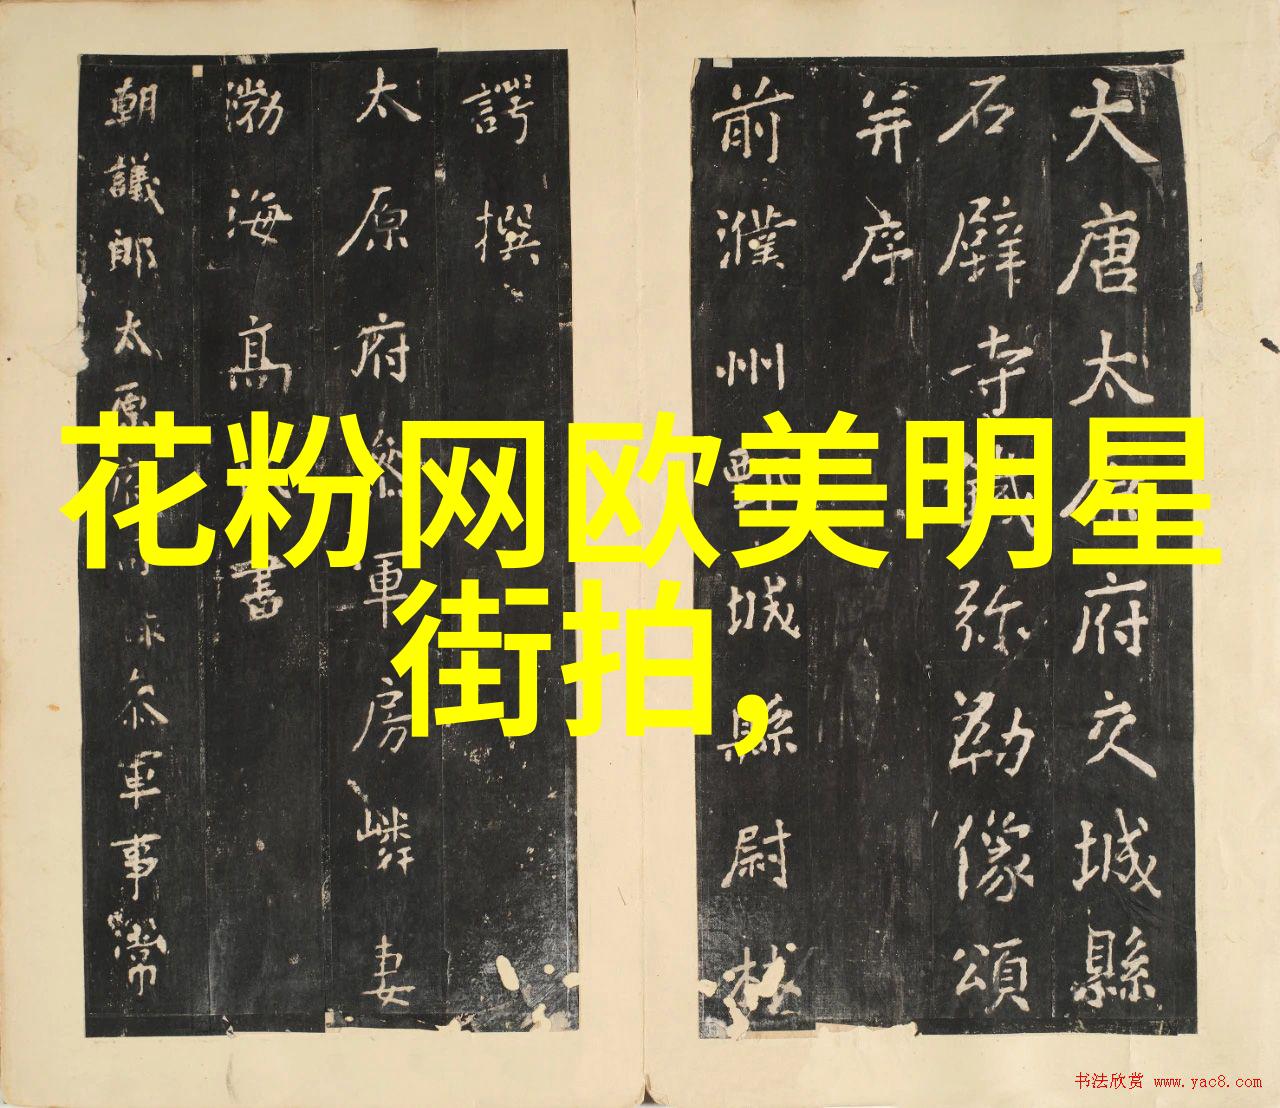 大唐太府交城縣
石壁寺鐵弥勒像頌
并序
前濮州城縣尉林
諤撰
太原府叅軍房嶙妻
渤海髙書
朝議郎太原府叅軍事常
花粉网欧美明星
街拍,
书法欣赏 www.yac8.com